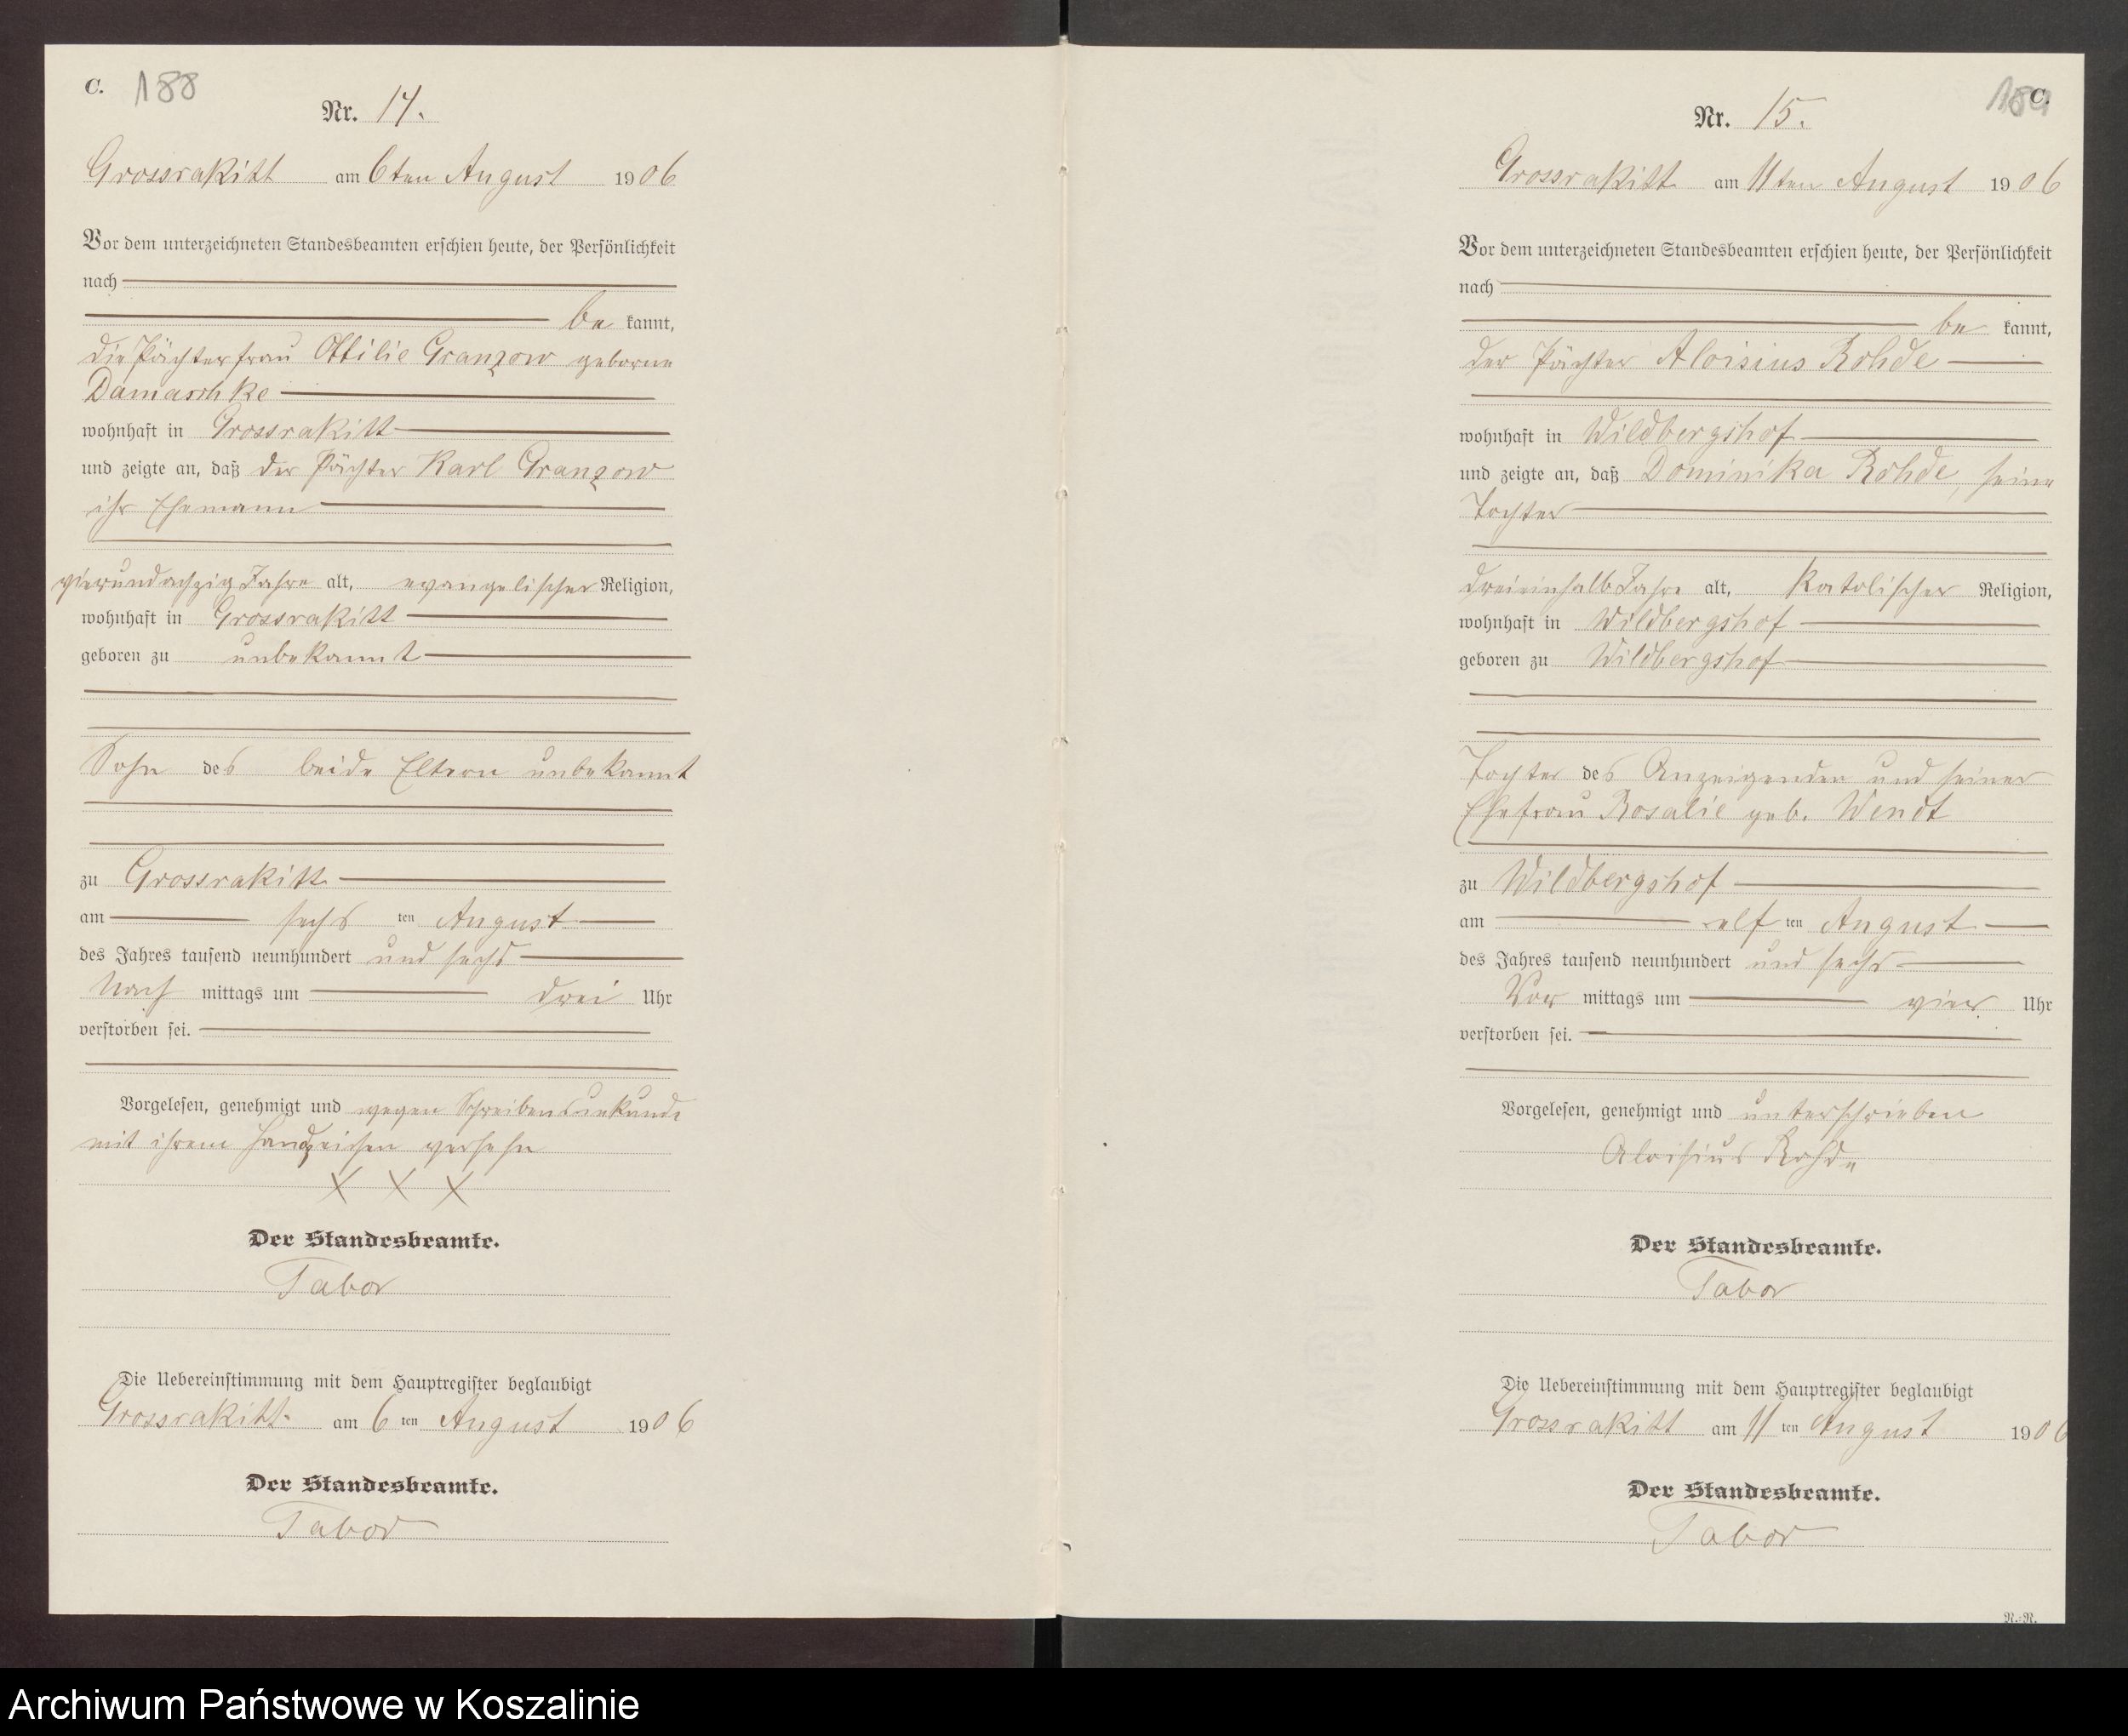 C. 188
Nr. 14.
Grossrakitt am 6ten August 1906
Vor dem unterzeichneten Standesbeamten erschien heute, der Persönlichkeit
nach
be kannt,
die Pächterfrau Ottilie Granzow geborne
Damaschke
wohnhaft in Grossrakitt
und zeigte an, daß der Pächter Karl Granzow
ihr Ehemann
vierundachzig Jahre alt, evangelischer Religion,
wohnhaft in Grossrakitt
geboren zu unbekannt
Sohn des beide Eltern unbekannt
zu Grossrakitt
am sechs ten August
des Jahres tausend neunhundert und sechs
Nach mittags um drei Uhr
verstorben sei.
Vorgelesen, genehmigt und wegen Schreibensunkunde
mit ihrem Handzeichen versehn
X X X
Der Standesbeamte.
Tabor
Die Uebereinstimmung mit dem Hauptregister beglaubigt
Grossrakitt. am 6 ten August 1906
Der Standesbeamte.
Tabor
189 C.
Nr. 15.
Grossrakitt am 11ten August 1906
Vor dem unterzeichneten Standesbeamten erschien heute, der Persönlichkeit
nach
be kannt,
der Pächter Aloisius Rohde
wohnhaft in Wildbergshof
und zeigte an, daß Dominika Rohde, seine
Tochter
dreieinhalb Jahre alt, Katolischer Religion,
wohnhaft in Wildbergshof
geboren zu Wildbergshof
Tochter des Anzeigenden und seiner
Ehefrau Rosalie geb. Wendt
zu Wildbergshof
am elf ten August
des Jahres tausend neunhundert und sechs
Vor mittags um vier Uhr
verstorben sei.
Vorgelesen, genehmigt und unterschrieben
Aloisius Rohde
Der Standesbeamte.
Tabor
Die Uebereinstimmung mit dem Hauptregister beglaubigt
Grossrakitt am 11 ten August 1906
Der Standesbeamte.
Tabor
N.-N.
Archiwum Państwowe w Koszalinie